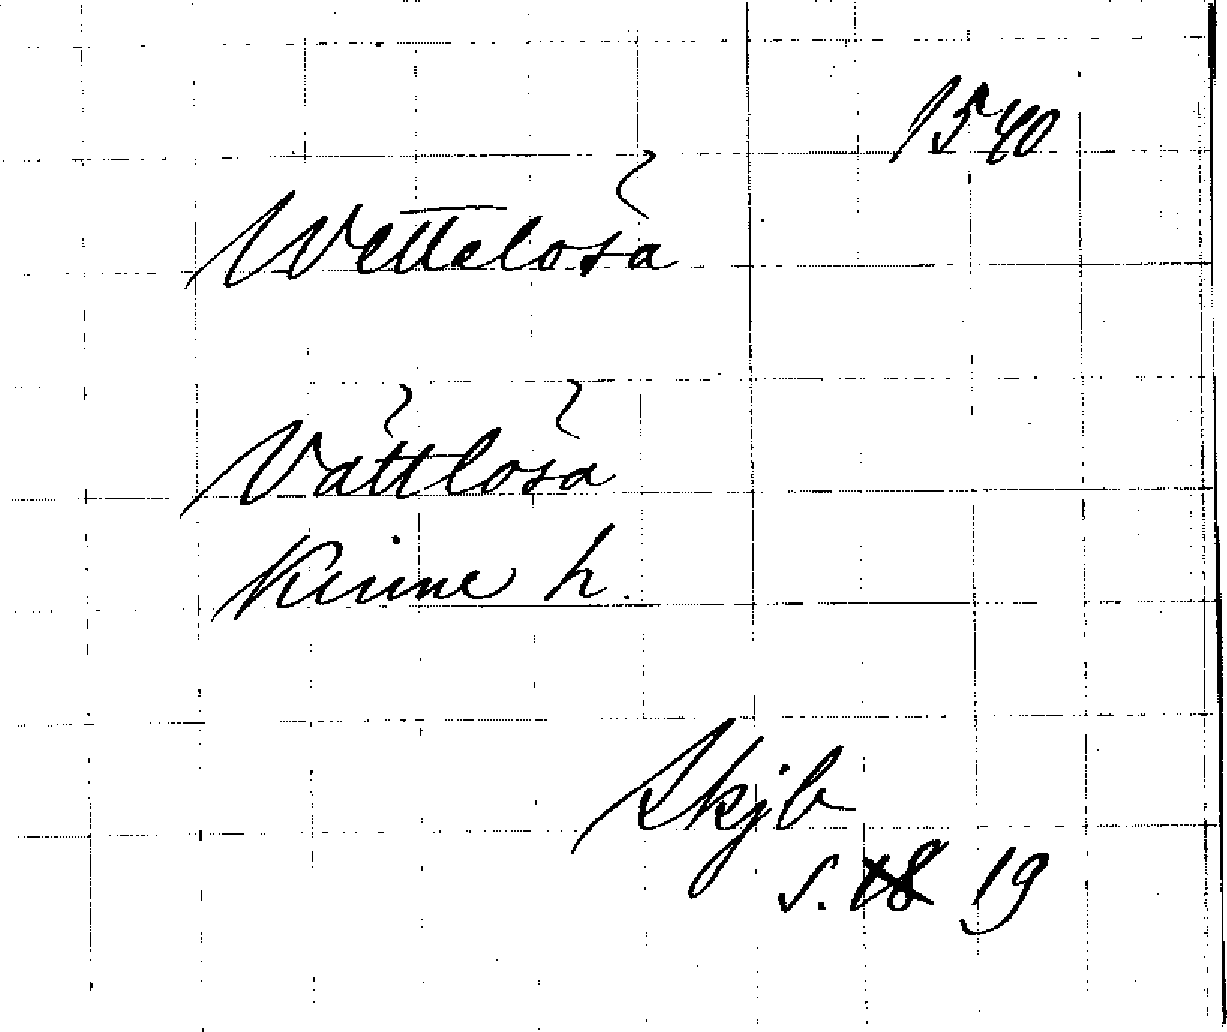 1540
Wettelösa
Vättlösa
Kinne h.
Skjb
s. 18 19